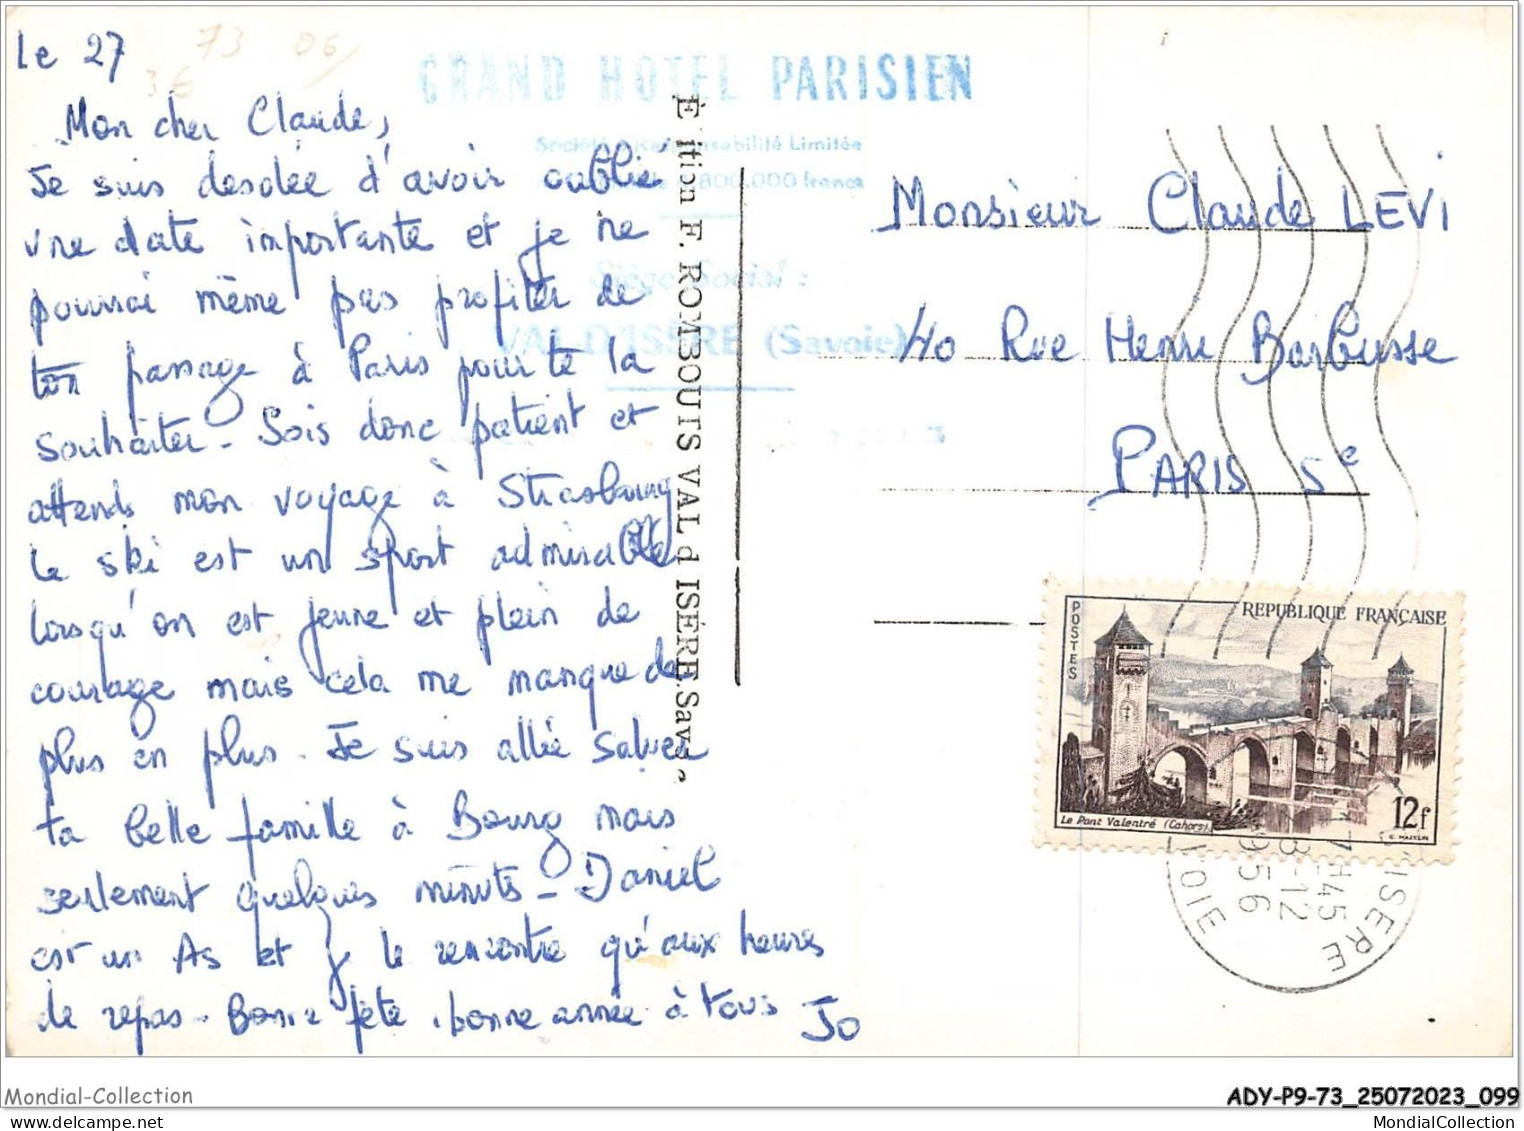 Le 27
73 06
36
Mon cher Claude,
Je suis desolée d'avoir oublié
une date importante et je ne
pourrai même pas profiter de
ton passage à Paris pour te la
souhaiter - Sois donc patient et
attends mon voyage à Strasbourg
Le ski est un sport admirable
lorsqu'on est jeune et plein de
courage mais cela me manque de
plus en plus. Je suis allée saluer
ta belle famille à Bourg mais
seulement quelques minuts - Daniel
est un As et je le rencontre qu'aux heures
de repas - Bonne fête, bonne année à tous Jo
GRAND HOTEL PARISIEN
Société à Responsabilité Limitée
800.000 francs
Siège Social :
VAL-D'ISÈRE (Savoie)
E ition F. ROMBOUTS VAL d ISÈRE Sav
Monsieur Claude LEVI
40 Rue Henri Barbusse
PARIS 5e
POSTES
REPUBLIQUE FRANÇAISE
Le Pont Valentré (Cahors)
12f
C. MAZELIN
7H45
8-12
956
ISERE
VOIE
Mondial-Collection
ADY-P9-73_25072023_099
MondialCollection